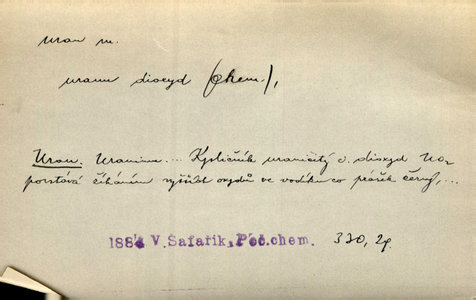 uran m.
uranu dioxyd (chem.),
Uran. Uranium... Kysličník uraničitý č. dioxyd UO₂
povstává žíháním vyšších oxydů ve vodíku co prášek černý,...
1884 V. Šafařík, Poč. chem. 330, 2p